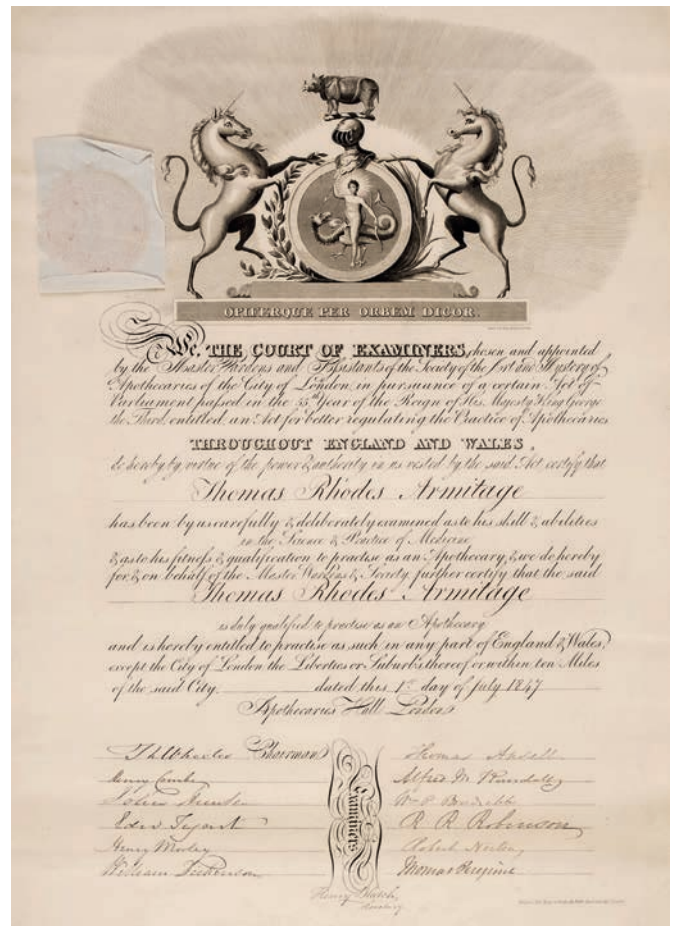 OPIFERQUE PER ORBEM DICOR.
We, THE COURT OF EXAMINERS, chosen and appointed
by the Master Wardens and Assistants of the Society of the Art and Mystery of
Apothecaries of the City of London, in pursuance of a certain Act of
Parliament passed in the 55th Year of the Reign of His Majesty King George
the Third, entitled, an Act for better regulating the Practice of Apothecaries
THROUGHOUT ENGLAND AND WALES,
do hereby by virtue of the power & authority in us vested by the said Act certify that
Thomas Rhodes Armitage
has been by us carefully & deliberately examined as to his skill & abilities
in the Science & Practice of Medicine
& as to his fitness & qualification to practise as an Apothecary, & we do hereby
for, & on behalf of the Master Wardens & Society, further certify that the said
Thomas Rhodes Armitage
is duly qualified to practise as an Apothecary
and is hereby entitled to practise as such in any part of England & Wales,
except the City of London the Liberties or Suburbs thereof or within ten Miles
of the said City. dated this 1st day of July 1847
Apothecaries Hall London
Wheeler Chairman
Thomas Ansell
Henry Combe
Alfred M Randall
John
Examiners
R R Robinson
Henry Morley
Robert
William Dickenson
Thomas Peregrine
Henry Blatch,